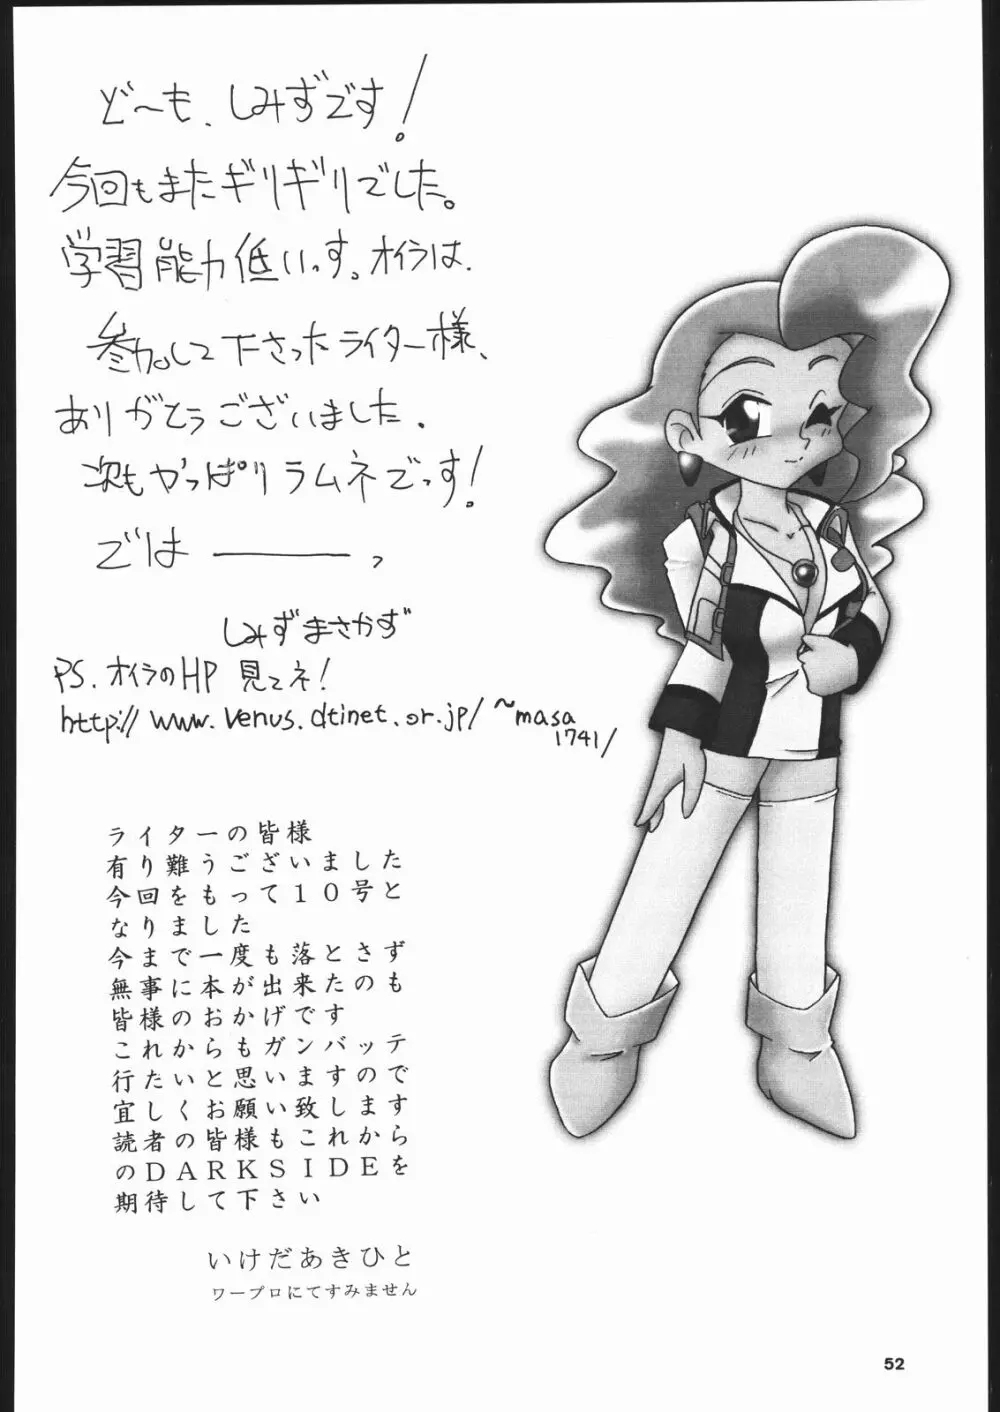 ど〜も、しみずです!
今回もまたギリギリでした。
学習能力低いっす。オイラは、
参加して下さったライター様、
ありがとうございました。
次もやっぱりラムネでっす!
では――――っ
しみずまさかず
PS. オイラのHP 見てネ!
http://www.venus.dtinet.or.jp/~masa
1741/
ライターの皆様
有り難うございました
今回をもって10号と
なりました
今まで一度も落とさず
無事に本が出来たのも
皆様のおかげです
これからもガンバッテ
行たいと思いますので
宜しくお願い致します
読者の皆様もこれから
のDARKSIDEを
期待して下さい
いけだあきひと
ワープロにてすみません
52